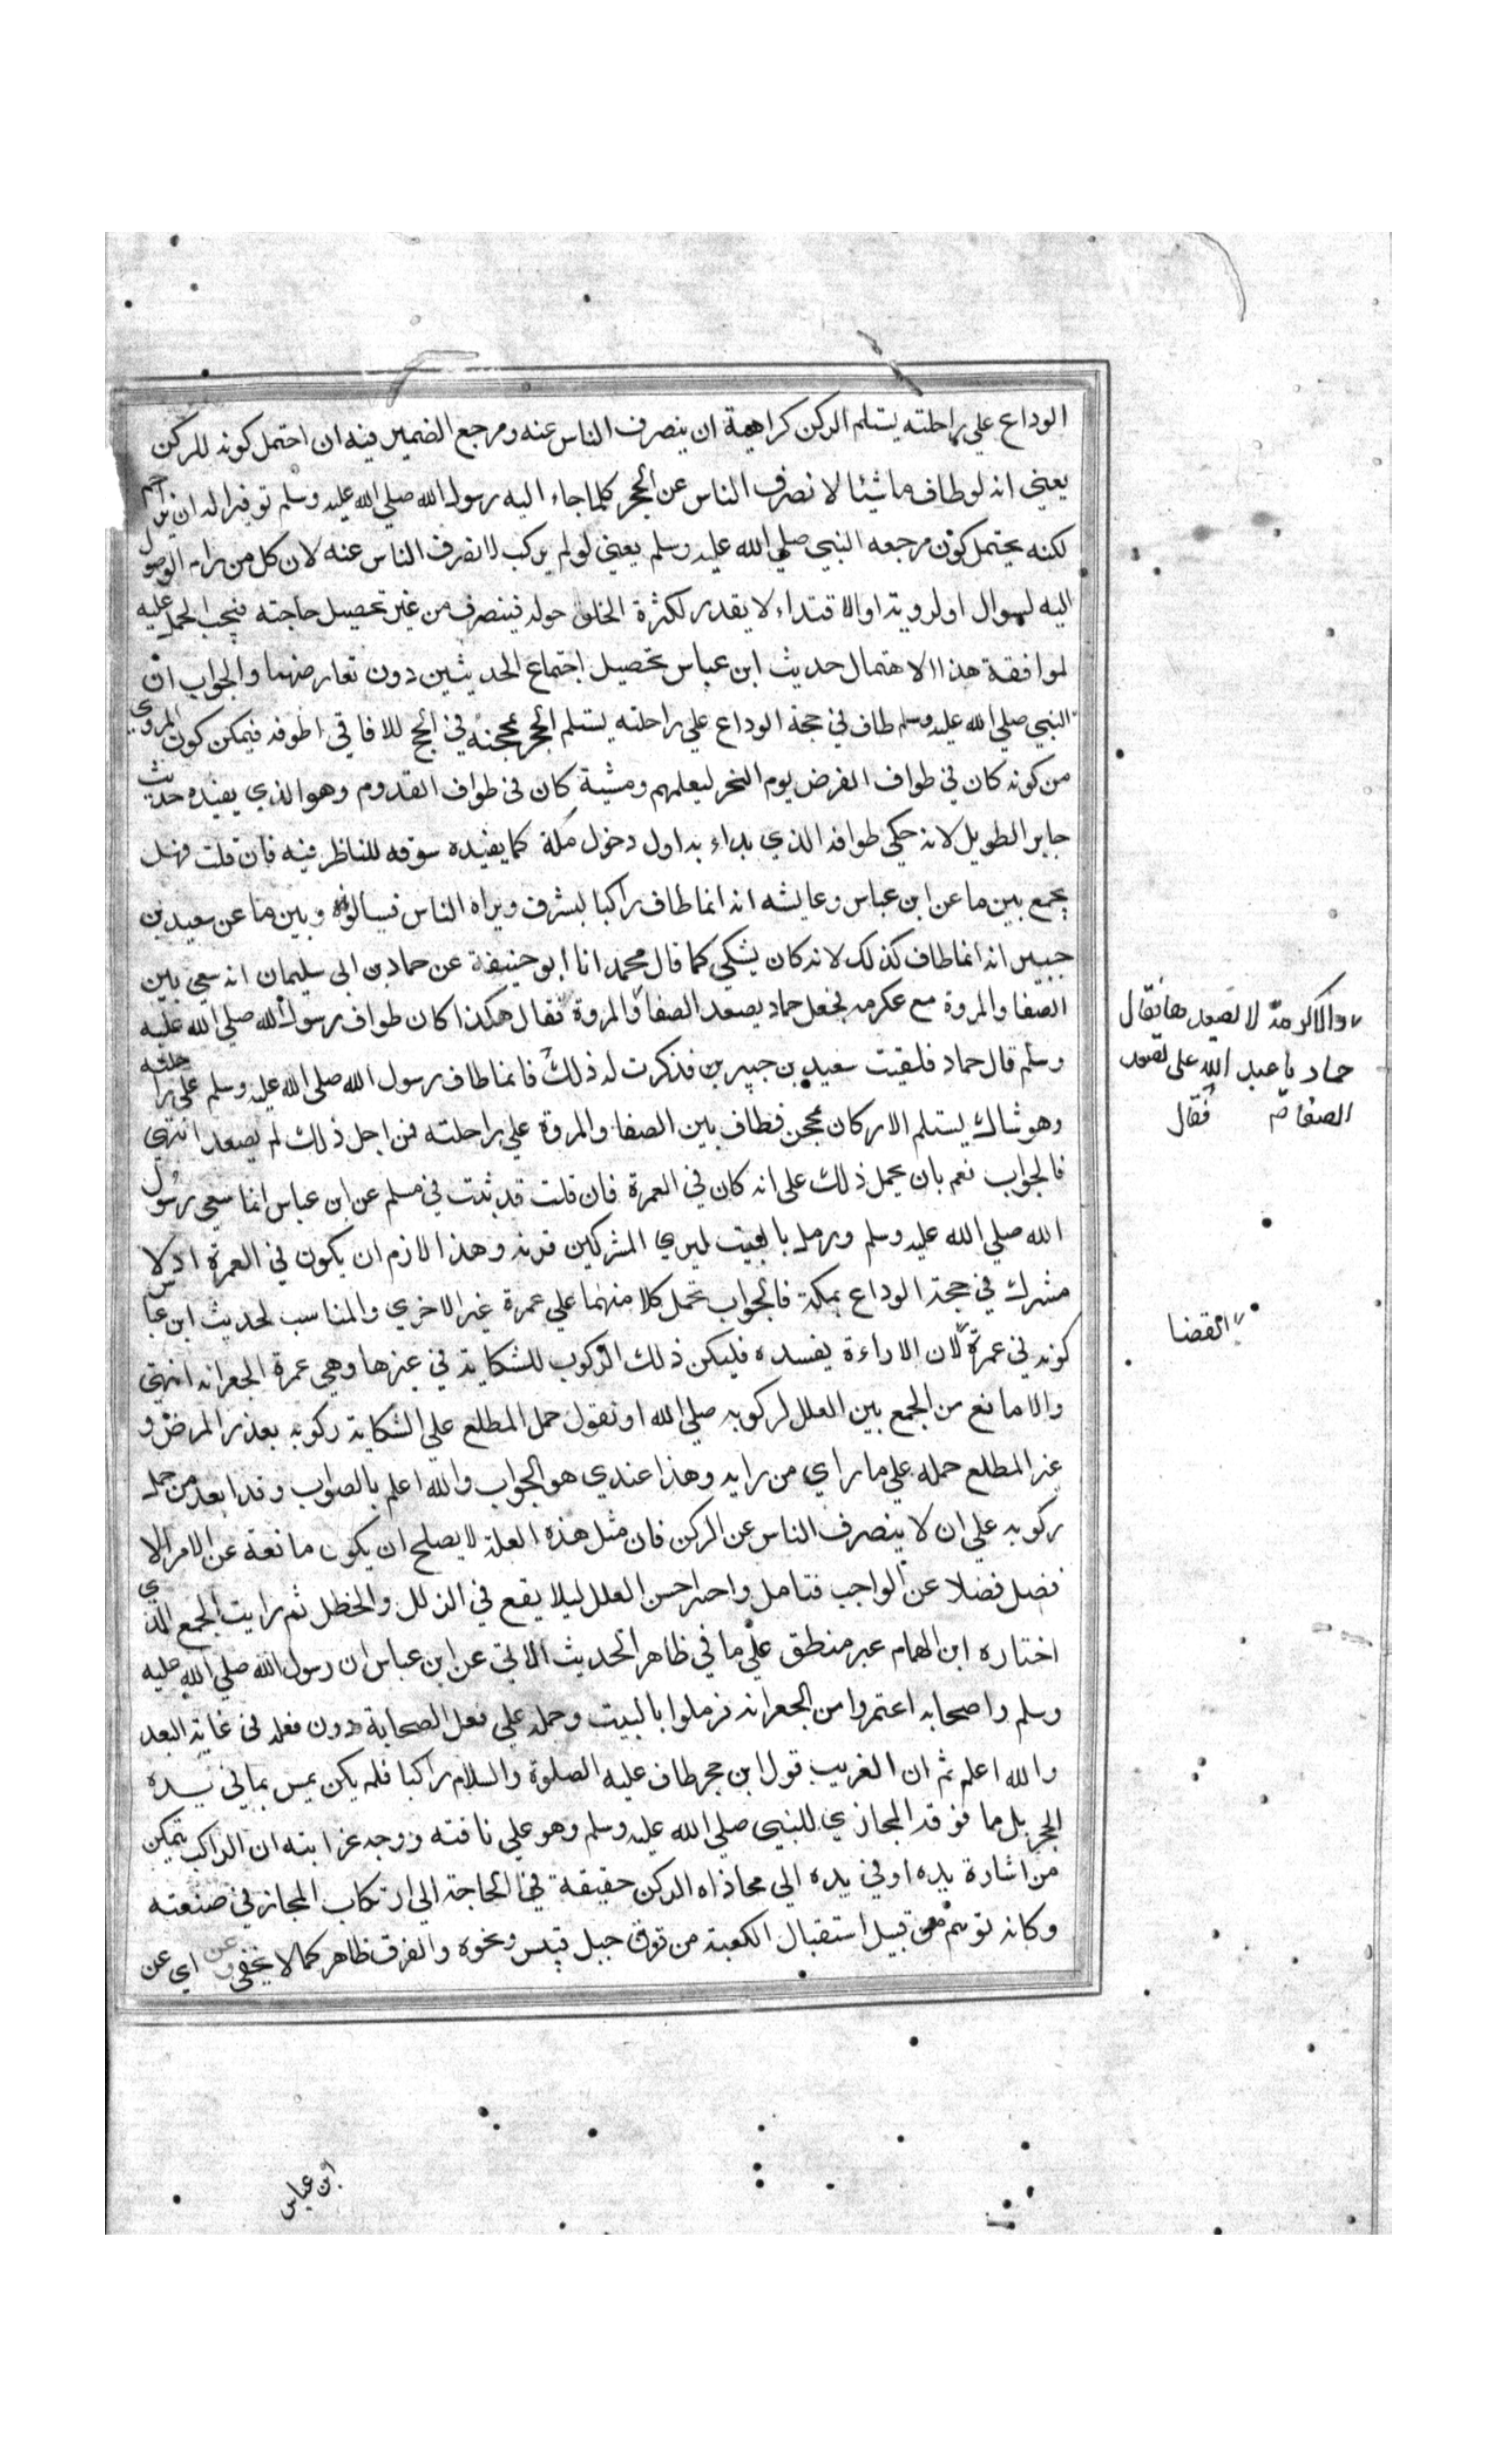 الوداع علي راحلته يستلم الركن كراهية ان ينصرف الناس عنه ومرجع الضمير فيه ان احتمل كونه للركن
يعني انه لو طاف ماشيا لانصرف الناس عن الحجر كلما جاء اليه رسول الله صلي الله عليه وسلم توقيرا له ان يزاحم
لكنه يحتمل كون مرجعه النبي صلي الله عليه وسلم يعني لو لم يركب لانصرف الناس عنه لان كل من رام الوصول
اليه لسوال او لرويته او الاقتداء لا يقدر لكثرة الخلق حوله فينصرف من غير تحصيل حاجته فيجب الحمل عليه
لموافقة هذا الاحتمال حديث ابن عباس تحصيل اجتماع الحديثين دون تعارضهما والجواب ان
النبي صلي الله عليه وسلم طاف في حجة الوداع علي راحلته يستلم الحجر بمحجنه في الحج للافاقي اطوفه فيمكن كون المروي
من كونه كان في طواف الفرض يوم النحر ليعلمهم ومشية كان في طواف القدوم وهو الذي يفيده حديث
جابر الطويل لانه حكي طوافه الذي بداء به اول دخول مكة كما يفيده سوقه للناظر فيه فان قلت فهل
يجمع بين ما عن ابن عباس وعايشه انه انما طاف راكبا ليشرف ويراه الناس فيسالوه وبين ما عن سعيد بن
جبير انه انما طاف كذلك لانه كان يشكي كما قال محمد انا ابو حنيفة عن حماد بن ابي سليمان انه سعي بين
الصفا والمروة مع عكرمه فجعل حماد يصعد الصفا والمروة فقال هكذا كان طواف رسول الله صلي الله عليه
وسلم قال حماد فلقيت سعيد بن جبير بن فذكرت له ذلك فانما طاف رسول الله صلي الله عليه وسلم علي راحلته
وهو شاك يستلم الاركان بمحجن فطاف بين الصفا والمروة علي راحلته فمن اجل ذلك لم يصعد انتهي
فالجواب نعم بان يحمل ذلك علي انه كان في العمرة فان قلت قد ثبت في مسلم عن ابن عباس انما سعي رسول
الله صلي الله عليه وسلم ورمل بالبيت ليري المشركين قوته وهذا لازم ان يكون في العمرة اذ لا
مشرك في حجة الوداع بمكة فالجواب تحمل كلا منهما علي عمرة غير الاخري والمناسب لحديث ابن عباس
كونه في عمرة لان الاراءة يفسده فليكن ذلك الركوب للشكاية في غيرها وهي عمرة الجعرانه انتهي
والا مانع من الجمع بين العلل لركوبه صلي الله او نقول حمل المطلع علي الشكاية ركوبه بعذر المرض و
غير المطلع حمله علي ما راي من رايه وهذا عندي هو الجواب والله اعلم بالصواب وقد ابعد من حمل
ركوبه علي ان لا ينصرف الناس عن الركن فان مثل هذه العلة لا يصلح ان يكون مانعة عن الامر الا
فضل فضلا عن الواجب فتامل واحذر حسن العلل ليلا يقع في الزلل والخطل ثم رايت الجمع الذي
اختاره ابن الهمام غير منطبق علي ما في ظاهر الحديث الاتي عن ابن عباس ان رسول الله صلي الله عليه
وسلم واصحابه اعتمروا من الجعرانه فرملوا بالبيت وحمله علي فعل الصحابة دون فعله في غاية البعد
والله اعلم ثم ان الغريب قول ابن حجر طاف عليه الصلوة والسلام راكبا فلم يكن يمس بما في يسده
الحجر بل ما فوقه المحاذي للنبي صلي الله عليه وسلم وهو علي ناقته ووجه غرابته ان الراكب يتمكن
من اشارة بيده او في يده الي محاذاه الركن حقيقة في الحاجة الي ارتكاب المجاز في صنعته
وكانه توهم من قبيل استقبال الكعبة من فوق جبل قبيس ونحوه والفرق ظاهر كما لا يخفي وعن اي عن
لا يصعدها فقال
حماد يا عبد الله علي تصعد
الصفا فقال
القضا
ابن عباس